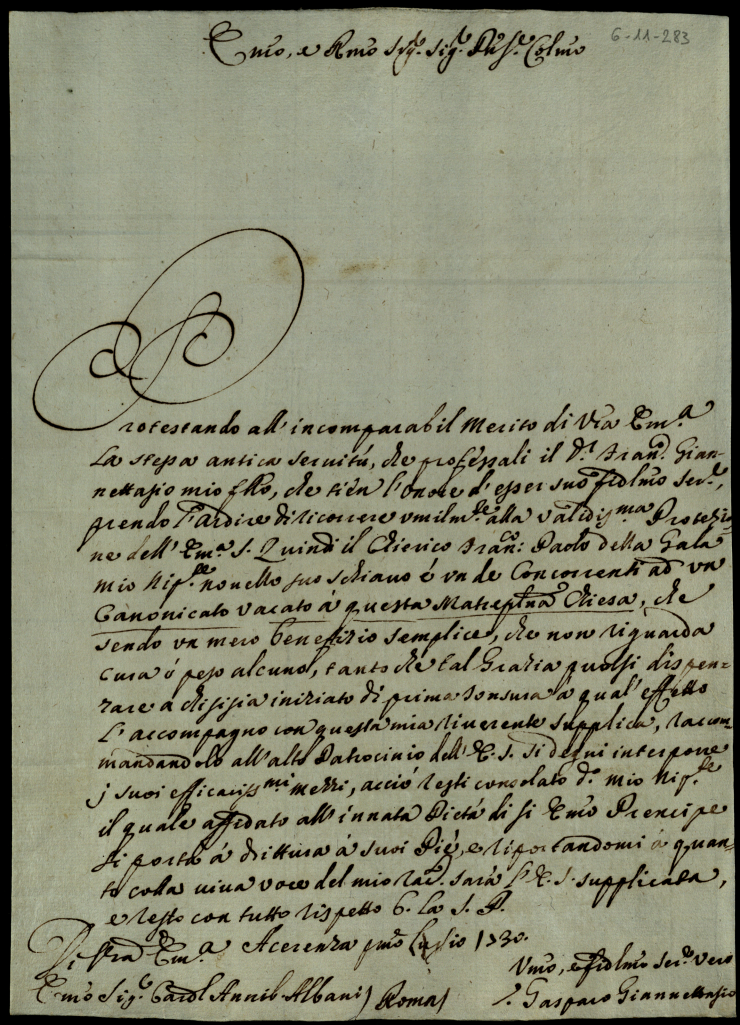 6-11-283
Emo, e Rmo Sig.r Sig.r Col.mo
Protestando all' incomparabil Merito di Vra Em.a
La stessa antica servitú, che professali il D.r Fran.co Gian-
nettasio mio fllo, che tién l'onore d'esser suo fidlmo ser.e,
prendo l'ardire di ricorrere umilm.te alla validis.ma Protezio-
ne dell' Em.a S. Quindi il Chierico Fran.co Paolo della Gala
mio Nip.te novello suo schiavo é un de Concorrenti ad un
Canonicato vacato á questa Chiesa, che
sendo un mero benefizio semplice, che non riguarda
cura ó peso alcuno, tanto che tal Grazia puossi dispen-
zare a chi sisia iniziato di prima tonsura á qual' effetto
L'accompagno con questa mia riverente supplica, raccom-
mandandolo all'alto Patrocinio dell' E. S. si degni interporre
j suoi efficaciss.mi mezzi, acció resti consolato d.o mio Nip.te
il quale affidato all' innata Pietá di si Emo Prencipe
si porta á drittura á suoi Piedi, e riportandomi á quan-
to colla viva voce del mio sará l'E. S. supplicata,
e resto con tutto rispetto b. la S. P.
Di Vra Em.a Acerenza pmo Luglio 1730.
Vmo, e fidlmo ser.e vero
Emo Sig.r Card.l Annib. Albani / Roma /
Gasparo Giannettasio